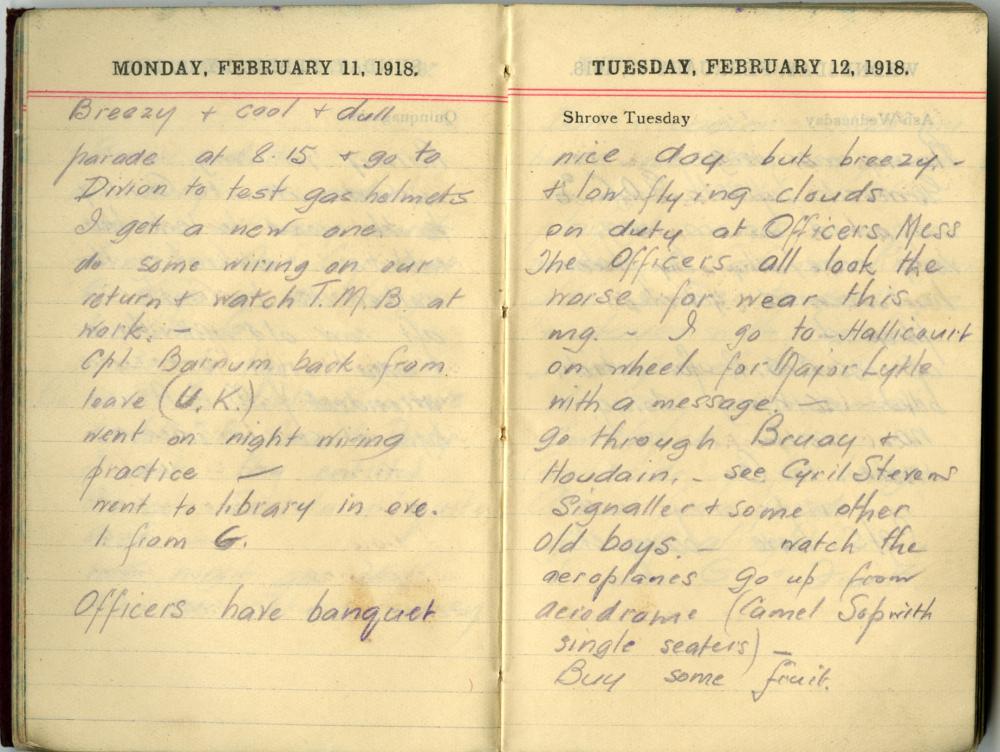 MONDAY, FEBRUARY 11, 1918.
Breezy + cool + dull
parade at 8.15 + go to
Divion to test gas helmets
I get a new one.
do some wiring on our
return + watch T.M.B. at
work. -
Cpl. Barnum back from
leave (U.K.)
went on night wiring
practice -
went to library in eve.
1 from G.
Officers have banquet
TUESDAY, FEBRUARY 12, 1918.
Shrove Tuesday
nice day but breezy. -
+ low flying clouds
on duty at Officers Mess
The Officers all look the
worse for wear this
mg. - I go to Hallicourt
on wheel for Major Lytle
with a message. -
go through Bruay +
Houdain. - see Cyril Stevens
Signaller + some other
old boys. - watch the
aeroplanes go up from
aerodrome (Camel Sopwith
single seaters) -
Buy some fruit.